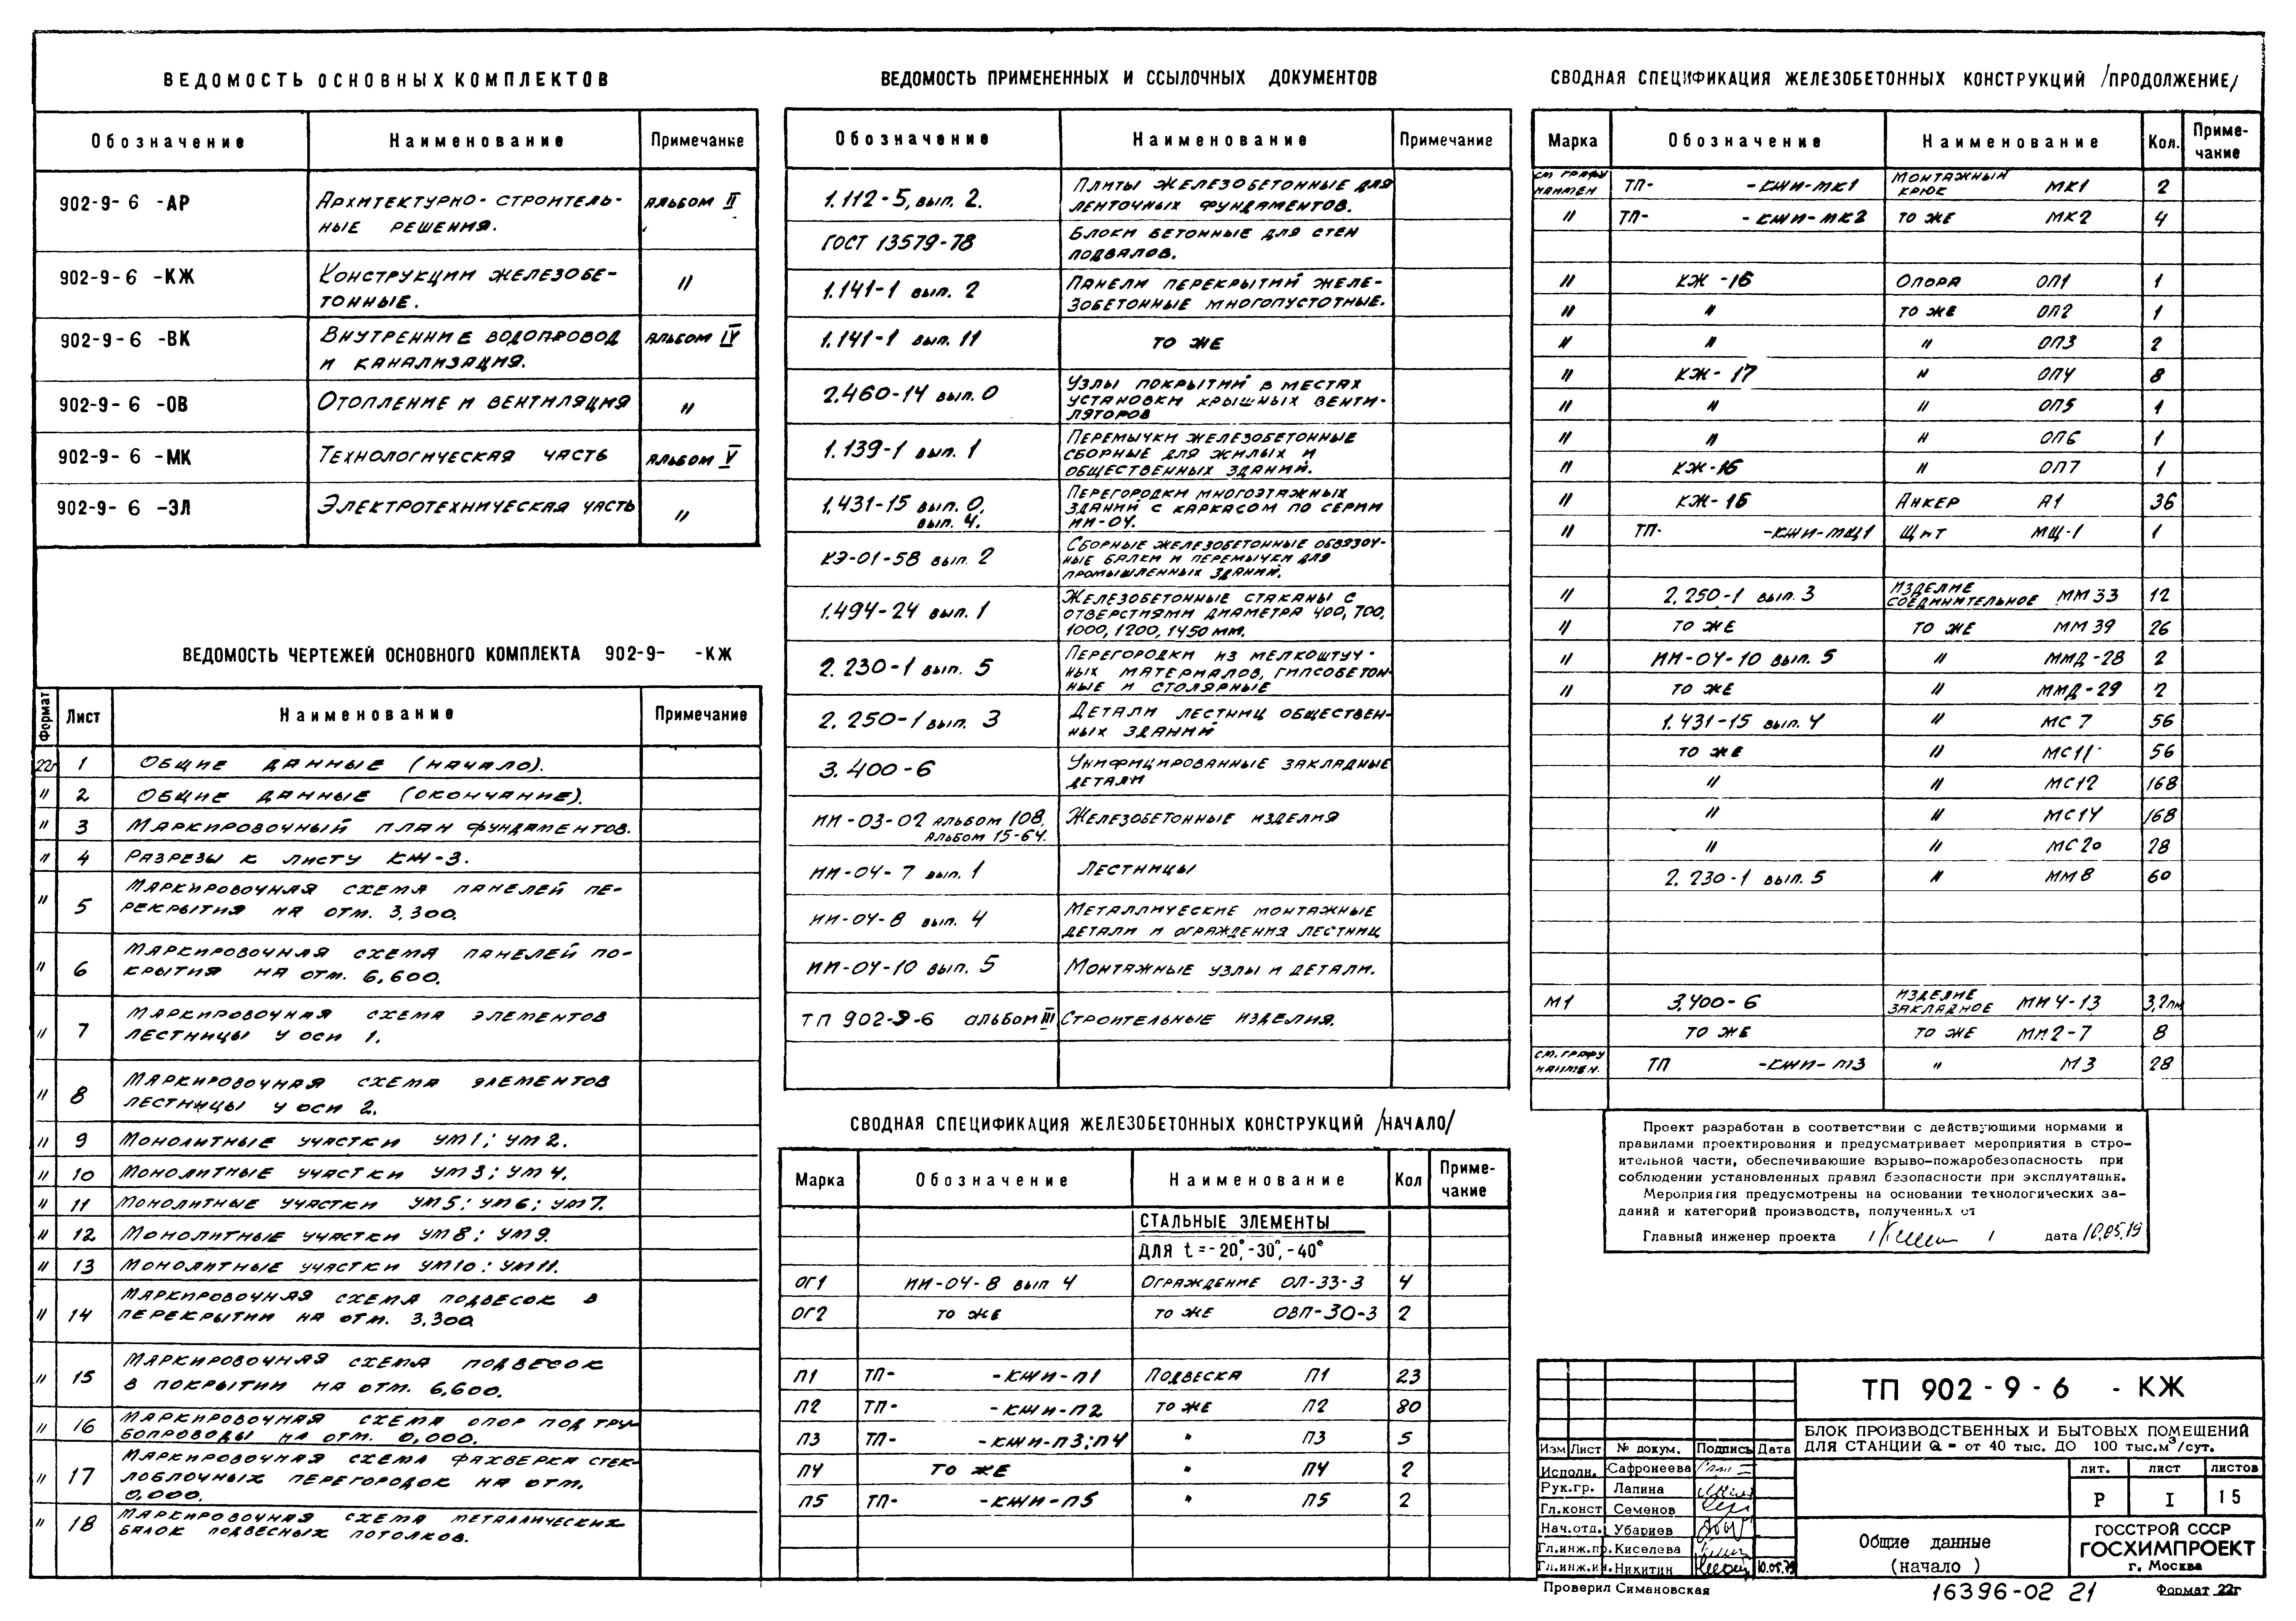 ВЕДОМОСТЬ ОСНОВНЫХ КОМПЛЕКТОВ
Обозначение Наименование Примечание
902-9- 6 -АР Архитектурно-строитель- альбом II
ные решения.
902-9-6 -КЖ Конструкции железобе- "
тонные.
902-9-6 -ВК Внутренние водопровод альбом IV
и канализация.
902-9- 6 -ОВ Отопление и вентиляция "
902-9- 6 -МК Технологическая часть альбом V
902-9- 6 -ЭЛ Электротехническая часть "
ВЕДОМОСТЬ ЧЕРТЕЖЕЙ ОСНОВНОГО КОМПЛЕКТА 902-9- -КЖ
Формат Лист Наименование Примечание
22г 1 Общие данные (начало).
" 2 Общие данные (окончание).
" 3 Маркировочный план фундаментов.
" 4 Разрезы к листу КЖ-3.
" 5 Маркировочная схема панелей пе-
рекрытия на отм. 3,300.
" 6 Маркировочная схема панелей по-
крытия на отм. 6,600.
" 7 Маркировочная схема элементов
лестницы у оси 1.
" 8 Маркировочная схема элементов
лестницы у оси 2.
" 9 Монолитные участки УМ1; УМ2.
" 10 Монолитные участки УМ3; УМ4.
" 11 Монолитные участки УМ5; УМ6; УМ7.
" 12 Монолитные участки УМ8; УМ9.
" 13 Монолитные участки УМ10; УМ11.
" 14 Маркировочная схема подвесок в
перекрытии на отм. 3,300
" 15 Маркировочная схема подвесок
в покрытии на отм. 6,600.
" 16 Маркировочная схема опор под тру-
бопроводы на отм. 0,000.
" 17 Маркировочная схема фахверка стек-
лоблочных перегородок на отм.
0,000.
" 18 Маркировочная схема металлических
балок подвесных потолков.
ВЕДОМОСТЬ ПРИМЕНЕННЫХ И ССЫЛОЧНЫХ ДОКУМЕНТОВ
Обозначение Наименование Примечание
1.112-5, вып. 2. Плиты железобетонные для
ленточных фундаментов.
ГОСТ 13579-78 Блоки бетонные для стен
подвалов.
1.141-1 вып. 2 Панели перекрытий желе-
зобетонные многопустотные.
1.141-1 вып. 11 то же
2.460-14 вып. 0 Узлы покрытий в местах
установки крышных венти-
ляторов
1.139-1 вып. 1 Перемычки железобетонные
сборные для жилых и
общественных зданий.
1.431-15 вып. 0, Перегородки многоэтажных
вып. 4. зданий с каркасом по серии
ИИ-04.
КЭ-01-58 вып. 2 Сборные железобетонные обвязоч-
ные балки и перемычки для
промышленных зданий.
1.494-24 вып. 1 Железобетонные стаканы с
отверстиями диаметра 400, 700,
1000, 1200, 1450 мм.
2.230-1 вып. 5 Перегородки из мелкоштуч-
ных материалов, гипсобетон-
ные и столярные
2.250-1 вып. 3 Детали лестниц обществен-
ных зданий
3.400-6 Унифицированные закладные
детали
ИИ-03-02 альбом 108, Железобетонные изделия
альбом 15-64.
ИИ-04-7 вып. 1 Лестницы
ИИ-04-8 вып. 4 Металлические монтажные
детали и ограждения лестниц
ИИ-04-10 вып. 5 Монтажные узлы и детали.
ТП 902-9-6 альбом III Строительные изделия.
СВОДНАЯ СПЕЦИФИКАЦИЯ ЖЕЛЕЗОБЕТОННЫХ КОНСТРУКЦИЙ /НАЧАЛО/
Марка Обозначение Наименование Кол Приме-
чание
СТАЛЬНЫЕ ЭЛЕМЕНТЫ
ДЛЯ t=-20°,-30°,-40°
ОГ1 ИИ-04-8 вып 4 Ограждение ОЛ-33-3 4
ОГ2 то же то же ОВП-30-3 2
П1 ТП- -КЖИ-П1 Подвеска П1 23
П2 ТП- -КЖИ-П2 то же П2 80
П3 ТП- -КЖИ-П3;П4 " П3 5
П4 то же " П4 2
П5 ТП- -КЖИ-П5 " П5 2
СВОДНАЯ СПЕЦИФИКАЦИЯ ЖЕЛЕЗОБЕТОННЫХ КОНСТРУКЦИЙ /ПРОДОЛЖЕНИЕ/
Марка Обозначение Наименование Кол. Приме-
чание
см. графу наимен ТП- -КЖИ-МК1 Монтажный крюк МК1 2
" ТП- -КЖИ-МК2 то же МК2 4
" КЖ-16 Опора ОП1 1
" " то же ОП2 1
" " " ОП3 2
" КЖ-17 " ОП4 8
" " " ОП5 1
" " " ОП6 1
" КЖ-16 " ОП7 1
" КЖ-16 Анкер А1 36
" ТП- -КЖИ-МЩ1 Щит МЩ-1 1
" 2.250-1 вып. 3 Изделие соединительное ММ33 12
" то же то же ММ39 26
" ИИ-04-10 вып. 5 " ММД-28 2
" то же " ММД-29 2
1.431-15 вып. 4 " МС7 56
то же " МС11 56
" " МС12 168
" " МС14 168
" " МС20 28
2.230-1 вып. 5 " ММ8 60
М1 3.400-6 Изделие закладное МИ4-13 3,2пм
то же то же МИ2-7 8
см. графу наимен. ТП -КЖИ-М3 " М3 28
Проект разработан в соответствии с действующими нормами и
правилами проектирования и предусматривает мероприятия в стро-
ительной части, обеспечивающие взрыво-пожаробезопасность при
соблюдении установленных правил безопасности при эксплуатации.
Мероприятия предусмотрены на основании технологических за-
даний и категорий производств, полученных от
Главный инженер проекта / / дата 10.05.79
ТП 902-9-6 - КЖ
БЛОК ПРОИЗВОДСТВЕННЫХ И БЫТОВЫХ ПОМЕЩЕНИЙ
ДЛЯ СТАНЦИИ Q = от 40 тыс. ДО 100 тыс.м³/сут.
Изм Лист № докум. Подпись Дата
Исполн. Сафронеева
Рук.гр. Лапина
Гл.конст Семенов
Нач.отд. Убариев
Гл.инж.пр. Киселева
Гл.инж.ин. Никитин 10.05.79
лит. лист листов
Р I 15
Общие данные
(начало)
ГОССТРОЙ СССР
ГОСХИМПРОЕКТ
г. Москва
Проверил Симановская
16396-02 21
Формат 22г